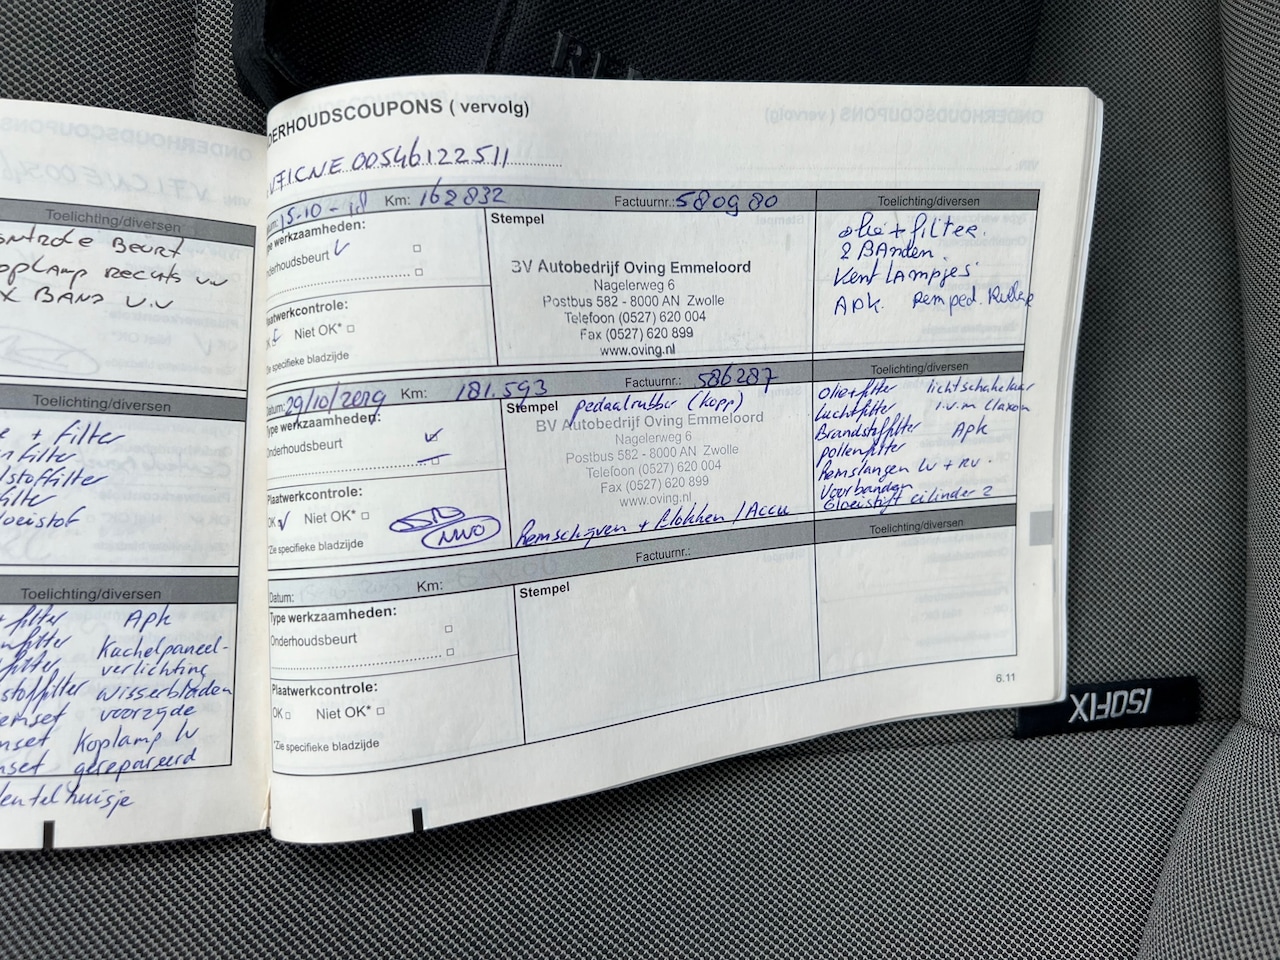 Toelichting/diversen
Controle Beurt
Koplamp rechts vv
BAND V.V
Toelichting/diversen
+ filter
filter
filter
Toelichting/diversen
filter Apk
filter Kachelpaneel-
filter verlichting
stoffilter wisserbladen
voorzijde
Koplamp lv
gerepareerd
ERHOUDSCOUPONS ( vervolg)
VF1CNE00546122511
15-10-18 Km: 162832 Factuurnr.: 580980 Toelichting/diversen
Type werkzaamheden:
Onderhoudsbeurt
Plaatwerkcontrole:
Niet OK*
specifieke bladzijde
Stempel
BV Autobedrijf Oving Emmeloord
Nagelerweg 6
Postbus 582 - 8000 AN Zwolle
Telefoon (0527) 620 004
Fax (0527) 620 899
www.oving.nl
olie + filter.
2 BAnden.
Kent LAmpjes
Apk. Remped. Rubber
Datum: 29/10/2019 Km: 181.593 Factuurnr.: 586287 Toelichting/diversen
Type werkzaamheden:
Onderhoudsbeurt
Plaatwerkcontrole:
OK Niet OK*
*Zie specifieke bladzijde
Stempel pedaalrubber (kopp)
BV Autobedrijf Oving Emmeloord
Nagelerweg 6
Postbus 582 - 8000 AN Zwolle
Telefoon (0527) 620 004
Fax (0527) 620 899
www.oving.nl
Remschijven + blokken / Accu
Olie+filter lichtschakelaar
Luchtfilter i.v.m claxon
Brandstoffilter Apk
pollenfilter
Remslangen lv + rv.
Voorbanden
Gloeistift cilinder 2
Datum: Km: Factuurnr.: Toelichting/diversen
Type werkzaamheden:
Onderhoudsbeurt
Plaatwerkcontrole:
OK Niet OK*
*Zie specifieke bladzijde
Stempel
6.11
ISOFIX